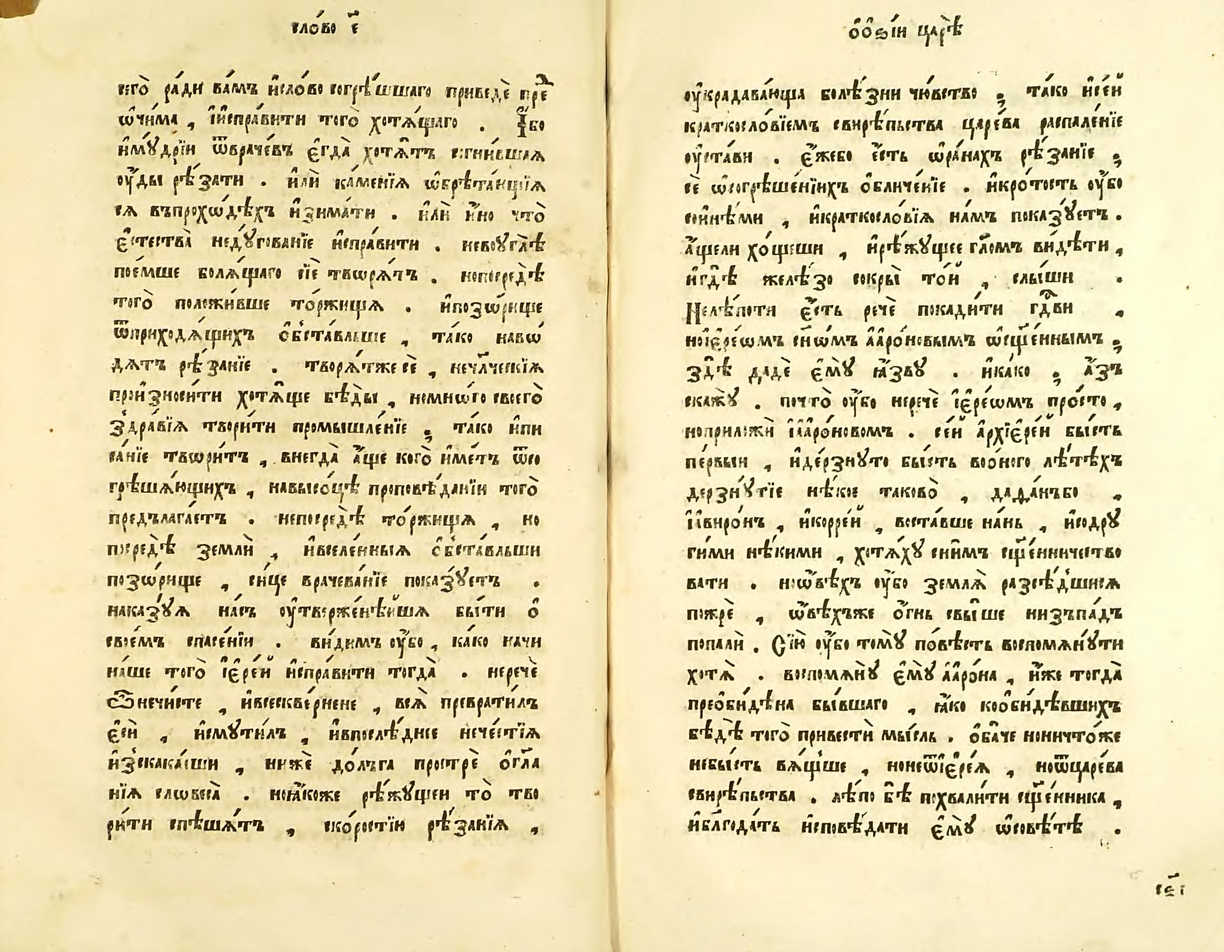 сло́во є҃
сего̀ ра́ди ва́мъ и҆сло́во согрѣ́шшаго приведѐ прⷣе
ѡ҆чи́ма , и҆и҆спра́вити того̀ хотѧ́щаго . І҆́бо
и҆му́дрїи ѿврачє́въ є҆гда̀ хотѧ́тъ согни́вшаѧ
оу҆́ды рѣ́зати . и҆лѝ ка́менїѧ ѡ҆брѣта́ющїѧ
сѧ въпрохѡ́дѣхъ и҆зима́ти . и҆лѝ и҆́но что̀
є҆стества̀ неду́гованїе и҆спра́вити . невоу́глѣ
пое́мше болѧ́щаго сїѐ творѧ́тъ . нопосредѣ̀
того̀ положи́вше то́ржища . и҆позѡ́рище
ѿприходѧ́щихъ ѡ҆бста́вльше , та́ко навѡ
дѧ́тъ рѣ́занїе . творѧ́тже сѐ , нечл҃ческїѧ
прои҆зноси́ти хотѧ́ще бѣ́ды , немно́го своего̀
здра́вїѧ твори́ти промышле́нїе ; та́ко и҆пи
са́нїе твори́тъ , внегда̀ а҆́ще кого̀ и҆́мет̾ ѿсо
грѣша́ющихъ , навысо́цѣ проповѣ́данїи того̀
предълага́етъ . непосредѣ̀ то́ржища , но
посредѣ̀ землѝ , и҆вселе́нныѧ ѡ҆бста́вльши
позѡ́рище , си́це врачева́нїе показу́етъ .
наказу́ѧ на́съ оу҆тверже́нѣйша бы́ти ѡ҆
свое́мъ спасе́нїи . ви́димъ оу҆̀бо , ка́ко начи
на́ше того̀ і҆ере́й и҆спра́вити тогда̀ . неречѐ
ѽнечи́сте , и҆всесквє́рнене , всѧ̀ преврати́лъ
є҆сѝ , и҆смути́лъ , и҆впослѣ́днее нече́стїѧ
и҆зскака́еши , нижѐ до́лга прострѐ ѡ҆гла
нїѧ словеса̀ . ноꙗ҆́коже рѣ́жущеи то̀ тво
ри́ти спѣша́тъ , ско́ростїи рѣ́занїѧ ,
ѻ҆ѻ҆зі́и царѣ̀
оу҆крадава́юща болѣ́зни чю́вство ; та́ко и҆се́й
краткосло́вїемъ свирѣ́пьства царе́ва распале́нїе
оу҆ста́ви . є҆́жебо є҆́сть ѡ҆ра́нахъ рѣ́занїе ;
сѐ ѡ҆согрѣше́нїихъ ѡ҆бличе́нїе . и҆кро́тость оу҆̀бо
си́инѣми , и҆краткосло́вїѧ на́мъ показу́етъ .
а҆́щели хо́щеши , и҆рѣ́жущее гл҃омъ ви́дѣти ,
и҆гдѣ̀ желѣ́зо сокры̀ то́й , слы́ши .
Нелѣ́поти є҆́сть речѐ покади́ти гдⷭ҇ви ,
ноі҆ере́ѡмъ сн҃ѡмъ а҆аро́новымъ ѡ҆сщ҃е́ннымъ ;
здѣ̀ дадѐ є҆мꙋ̀ ꙗ҆́звꙋ . и҆ка́ко ; а҆́зъ
скажꙋ̀ . почто̀ оу҆̀бо неречѐ і҆ере́ѡмъ про́сто ,
ноприложѝ і҆а҆аро́новомъ . се́й а҆рхїере́й бы́сть
пе́рвыи , и҆дерзну́то бы́сть воо́ного лѣ́тѣхъ
дерзну́тїе нѣ́кое таково̀ , да,да́нъбо ,
і҆а҆виро́нъ , и҆корре́й , воста́вше на́нь , и҆содру
ги́ми нѣ́кими , хотѧ́хꙋ сни́мъ сщ҃е́нничьство
вати . ноѡ҆́вѣхъ оу҆̀бо землѧ̀ разсѣ́дшисѧ
пожрѐ , ѡ҆́вѣхъже ѻ҆́гнь свы́ше низъпа́дъ
попалѝ . Сїю̀ оу҆̀бо томꙋ̀ по́вѣсть воспомѧну́ти
хотѧ̀ . воспомѧнꙋ̀ є҆мꙋ̀ а҆аро́на , и҆́же тогда̀
преоби́дѣна бы́вшаго , ꙗ҆́ко коѡби́дѣвшихъ
бѣдѣ̀ того̀ привестѝ мы́сль . ѻ҆ба́че ноничто́же
небы́сть вѧ́щше , нонеѿі҆ере́ѧ , ноѿцаре́ва
свирѣ́пьства . лѣ́по бѣ̀ похвали́ти сщ҃е́нника ,
и҆бл҃года́ть и҆сповѣ́дати є҆мꙋ̀ ѡ҆совѣ́тѣ .